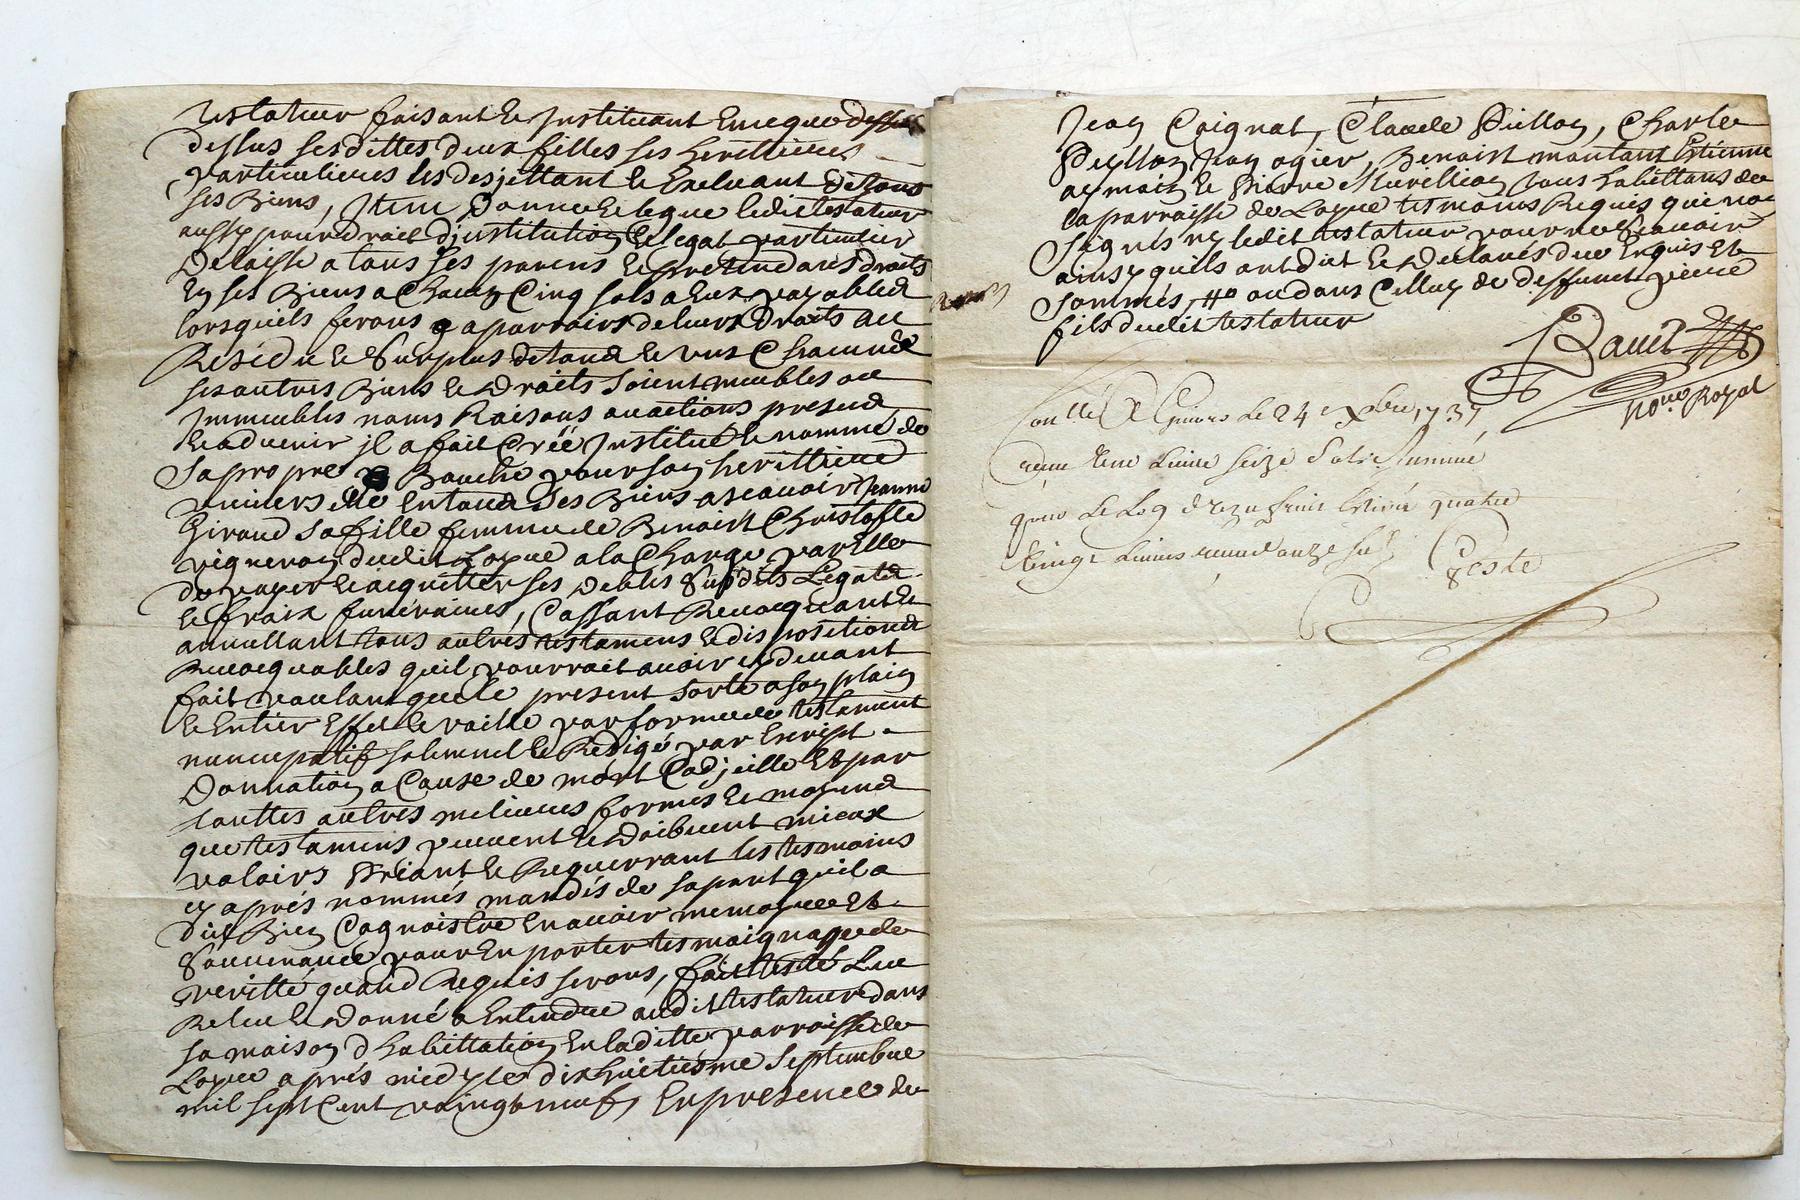 testateur faisant et Instituant Emeque
dessus sesdittes deux filles ses herittieres
particulieres les desjettant et Excluant de tous
ses Biens, Item Donne et legue ledit testateur
aussy pour droit d'institution et legat particulier
Delaisse a tous ses parens et pretendans droits
En ses Biens a Chacun Cinq sols a Eux payables
lorsquils feront aparroirs de leurs Droits Au
Residu et Surplus de tous et uns Chacuns
ses autres Biens et Droits soient meubles ou
Immeubles noms Raisons ou actions presens
et advenir il a fait Créé Institué et nommé de
sa propre Bouche pour son herittiere
universelle en tous ses Biens a scauoir Jeanne
Giraud sa fille femme de Benoist Christofle
vigneron dudit Loyue a la Charge par Elle
de payer et acquitter ses Debtes Susdits Legats
et fraix funéraires, Cassant Reuocquant et
annullant tous autres testamens et dispositions
Reuocquables quil pourrait auoir cy deuant
fait voulant que le present sorte a son plain
et Entier Effet et vaille par forme de testament
nuncupatif solemnel et Redigé par Escript
Donnation a Cause de mort Codjcille Et par
touttes autres melieures formes et moyens
que testamens peuuent et Doibuent mieux
valoirs Priant et Requerrant les tesmoins
cy aprés nommés mandés de sa part quil a
dit Bien Cognoistre En auoir memoyre Et
Souuenance pour En porter tesmoignage de
veritté quand Requis seront, fait testé Leu
Releu et Donné a Entendre audit testateur dans
sa maison d'habittation En laditte parroisse de
Loyue aprés midy le dixhuictiesme Septembre
mil sept Cent vaingt neuf, En presence de
Jean Coignat, Claude Pillon, Charle
Peyllon, Jean ogier, Benoist montant Estienne
aymoz et Pierre Murillion tous habittans de
la parroisse de Loyue tesmoins Requis qui nont
Signés ny ledit testateur pour ne Scauoir
ainsy quils ont dit et Declarés de ce Enquis Et
Sommés, ou dans Celluy de deffunct pierre
fils dudit testateur
Rauit
no.re Royal
Con.llé A Giuors Le 24 e xbre 1737
receu Seize Sols
pour Le quatre
uingt Liures onze sols
Teste